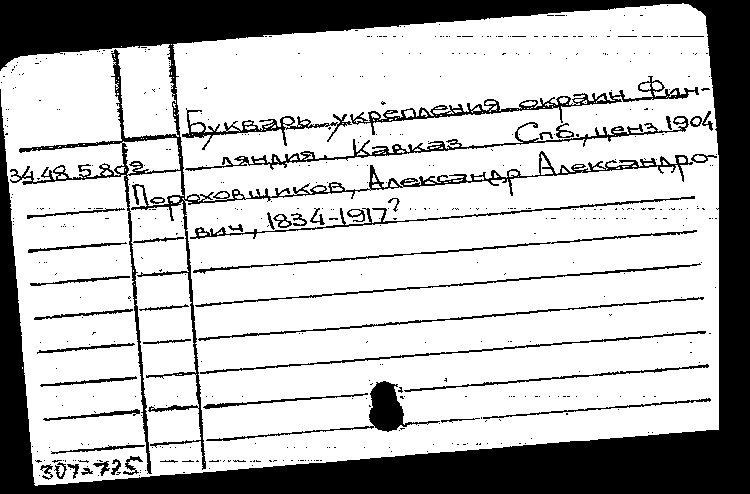 Букварь укрепления окраин Фин-
34.48.5.802 ляндия. Кавказ Спб., ценз. 1904
Пороховщиков, Александр Александро-
вич, 1834-1917?
307-725